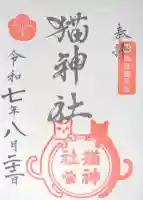 奉拝
猫神社
令和七年八月二十二日
猫神
社